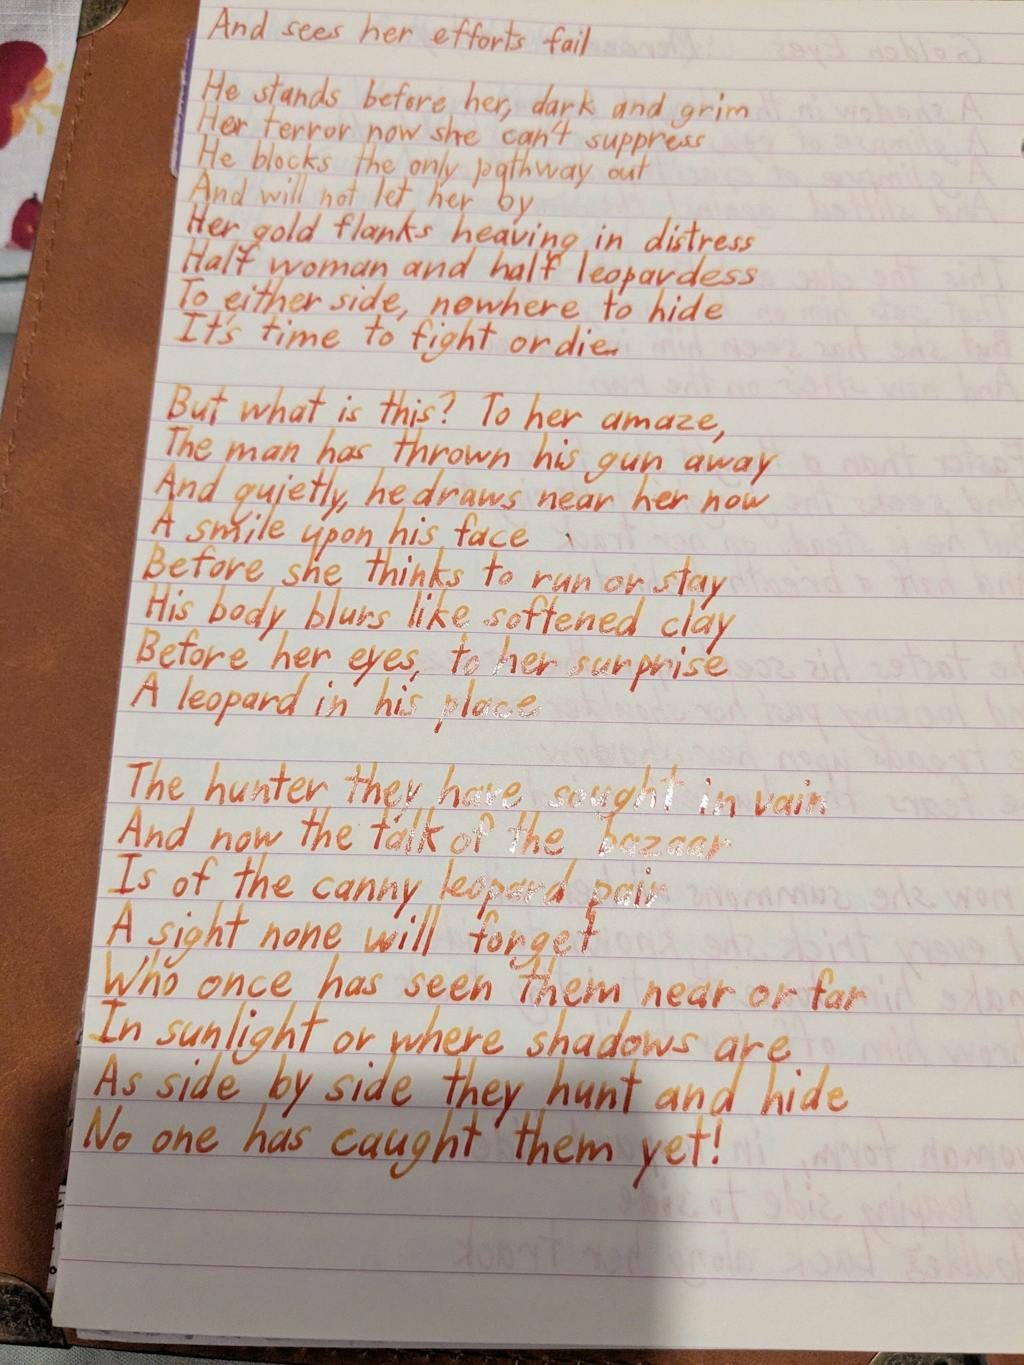 And sees her efforts fail
He stands before her, dark and grim
Her terror now she can't suppress
He blocks the only pathway out
And will not let her by
Her gold flanks heaving in distress
Half woman and half leopardess
To either side, nowhere to hide
It's time to fight or die.
But what is this? To her amaze,
The man has thrown his gun away
And quietly, he draws near her now
A smile upon his face
Before she thinks to run or stay
His body blurs like softened clay
Before her eyes, to her surprise
A leopard in his place
The hunter they have sought in vain
And now the talk of the bazaar
Is of the canny leopard pair
A sight none will forget
Who once has seen them near or far
In sunlight or where shadows are
As side by side they hunt and hide
No one has caught them yet!